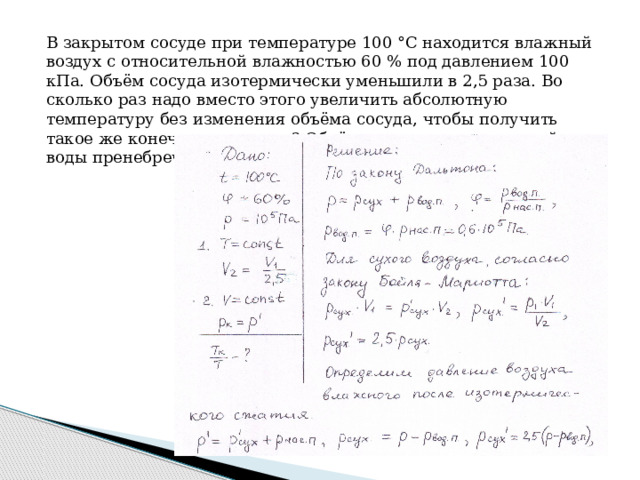 В закрытом сосуде при температуре 100 °С находится влажный
воздух с относительной влажностью 60 % под давлением 100
кПа. Объём сосуда изотермически уменьшили в 2,5 раза. Во
сколько раз надо вместо этого увеличить абсолютную
температуру без изменения объёма сосуда, чтобы получить
такое же
воды
Дано:
t = 100°C
φ = 60%
p = 10⁵Па
1. T = const
V₂ = V₁/2,5
2. V = const
pк = p'
Tк/T - ?
Решение:
По закону Дальтона:
p = pсух + pвод.п , φ = pвод.п./pнас.п. ,
pвод.п. = φ · pнас.п = 0,6·10⁵Па.
Для сухого воздуха, согласно
закону Бойля - Мариотта:
pсух · V₁ = p'сух · V₂ , pсух' = p₁·V₁/V₂ ,
pсух' = 2,5·pсух.
Определим давление воздуха
влажного после изотермичес-
кого сжатия
p' = p'сух + pнас.п , pсух = p - pвод.п , pсух' = 2,5(p-pвд.п),